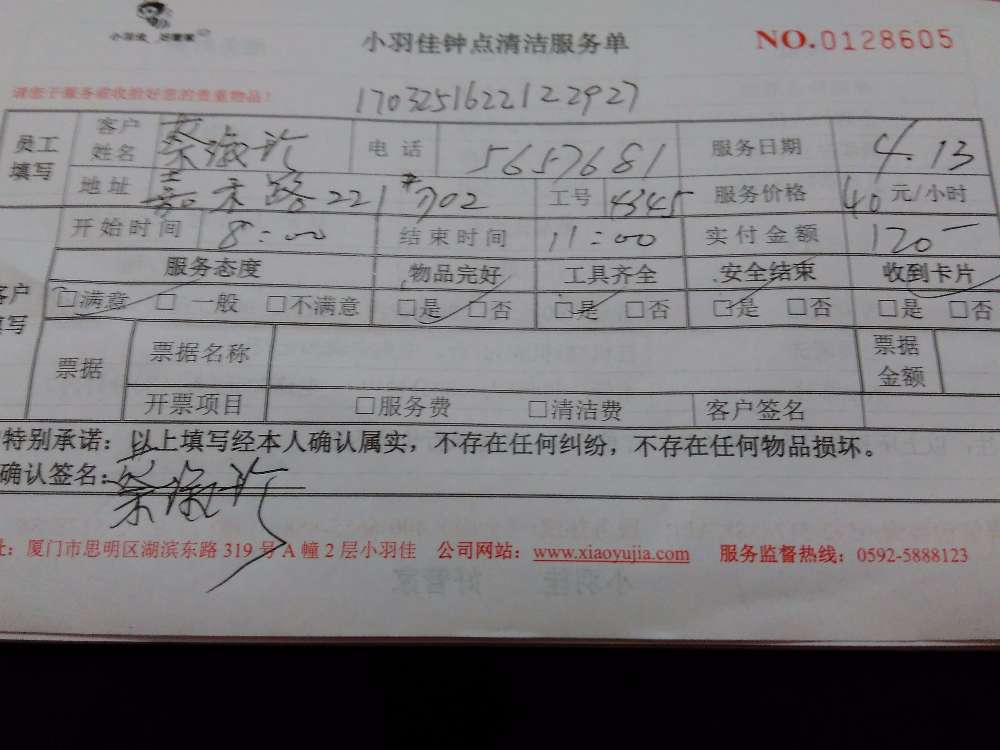 小羽佳 好管家
小羽佳钟点清洁服务单
NO.0128605
请您于服务前收拾好您的贵重物品！
170325162212 2927
员工填写 客户姓名 电话 5657681 服务日期 4.13
地址 嘉禾路221#702 工号 4345 服务价格 40元/小时
开始时间 8:00 结束时间 11:00 实付金额 120
客户填写 服务态度 物品完好 工具齐全 安全结束 收到卡片
□满意 □一般 □不满意 □是 □否 □是 □否 □是 □否 □是 □否
票据 票据名称 票据金额
开票项目 □服务费 □清洁费 客户签名
特别承诺：以上填写经本人确认属实，不存在任何纠纷，不存在任何物品损坏。
确认签名：
址：厦门市思明区湖滨东路 319 号 A 幢 2 层小羽佳 公司网站：www.xiaoyujia.com 服务监督热线：0592-5888123